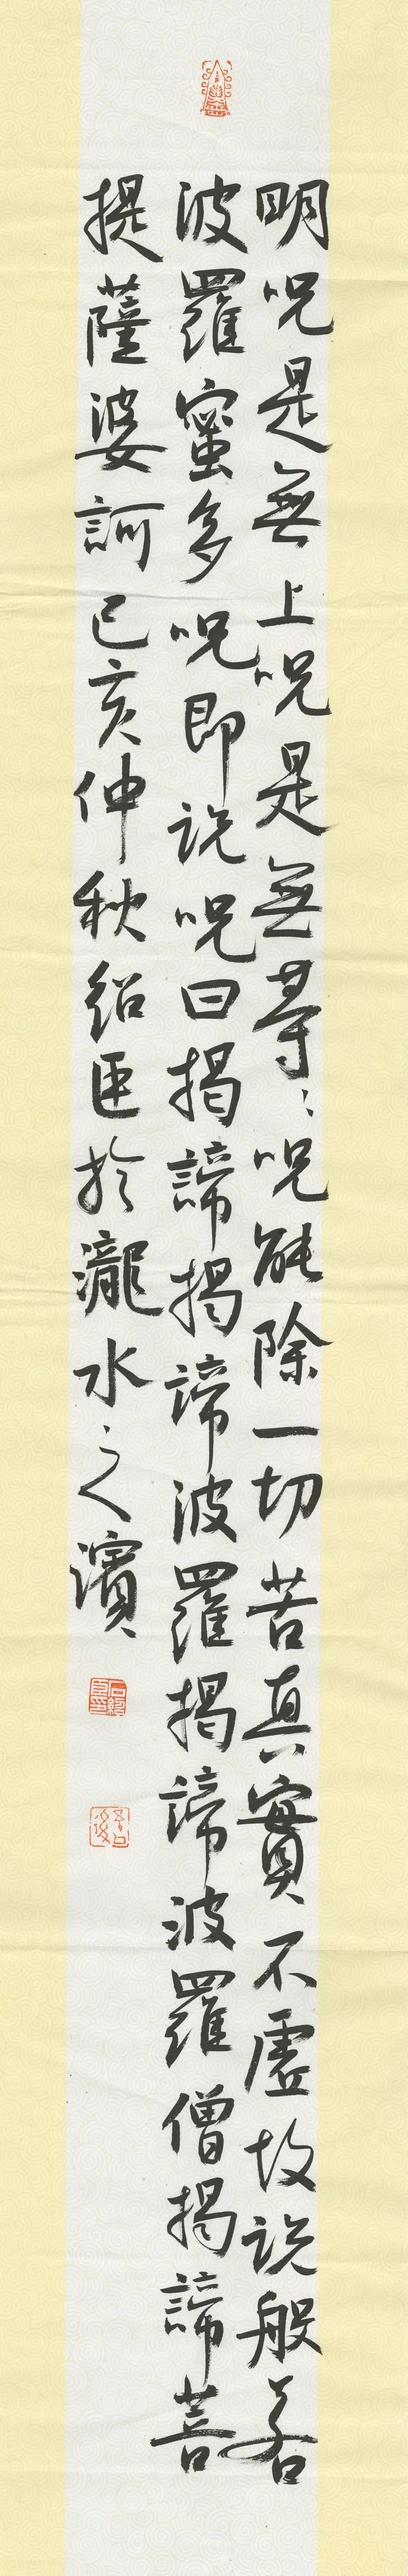 明呪是無上呪是無等〻呪能除一切苦真實不虛故說般若
波羅蜜多呪即說呪曰揭諦揭諦波羅揭諦波羅僧揭諦菩
提薩婆訶己亥仲秋紹臣於瀧水之濱